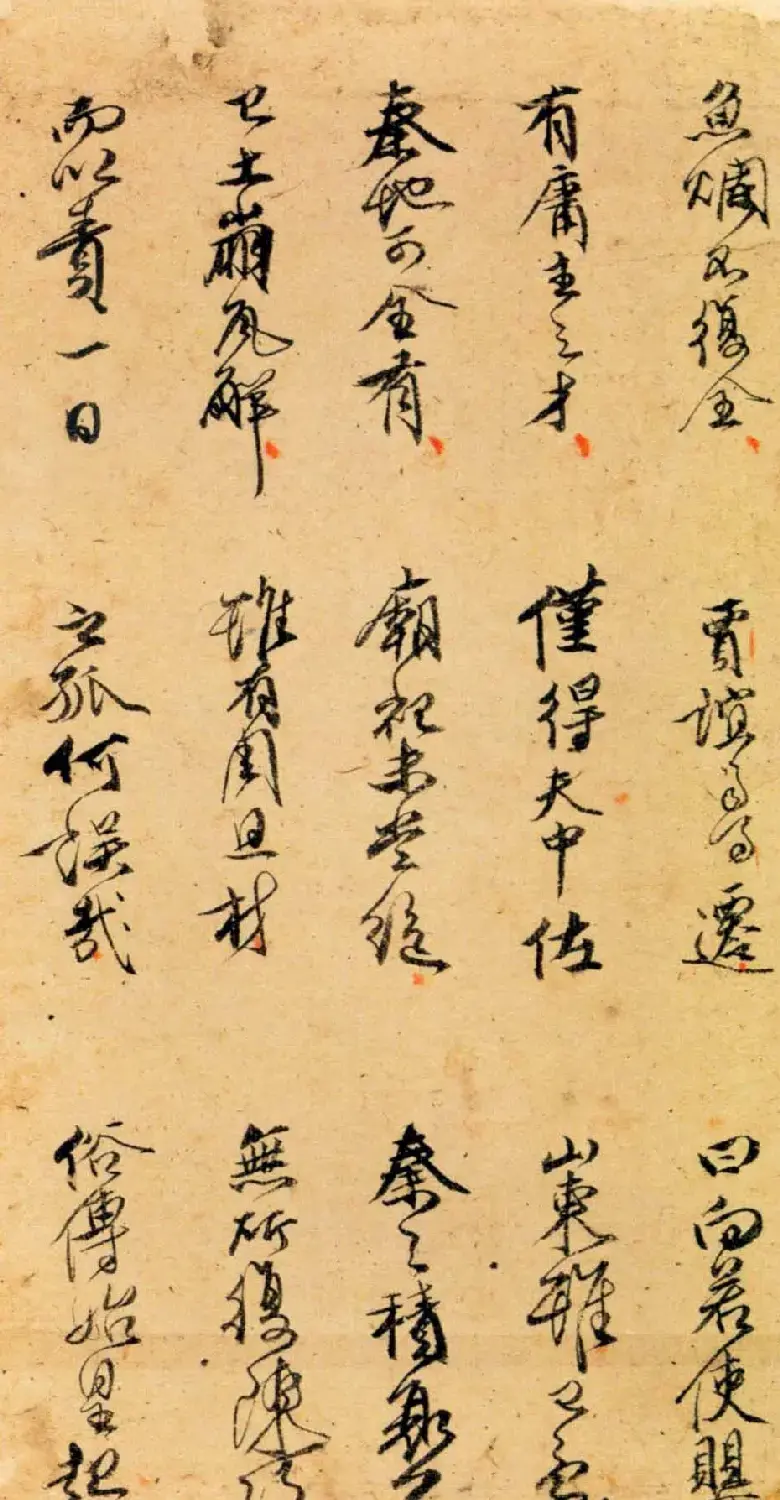 魚爛不復全 賈誼司馬遷 曰向若使
有庸主之才 僅得夫中佐 山東雖已
秦地可全有 廟祀未當絕 秦之積衰
已土崩瓦解 雖有周旦材 無所復陳
而以責一日 之孤何誤哉 俗傳始皇起